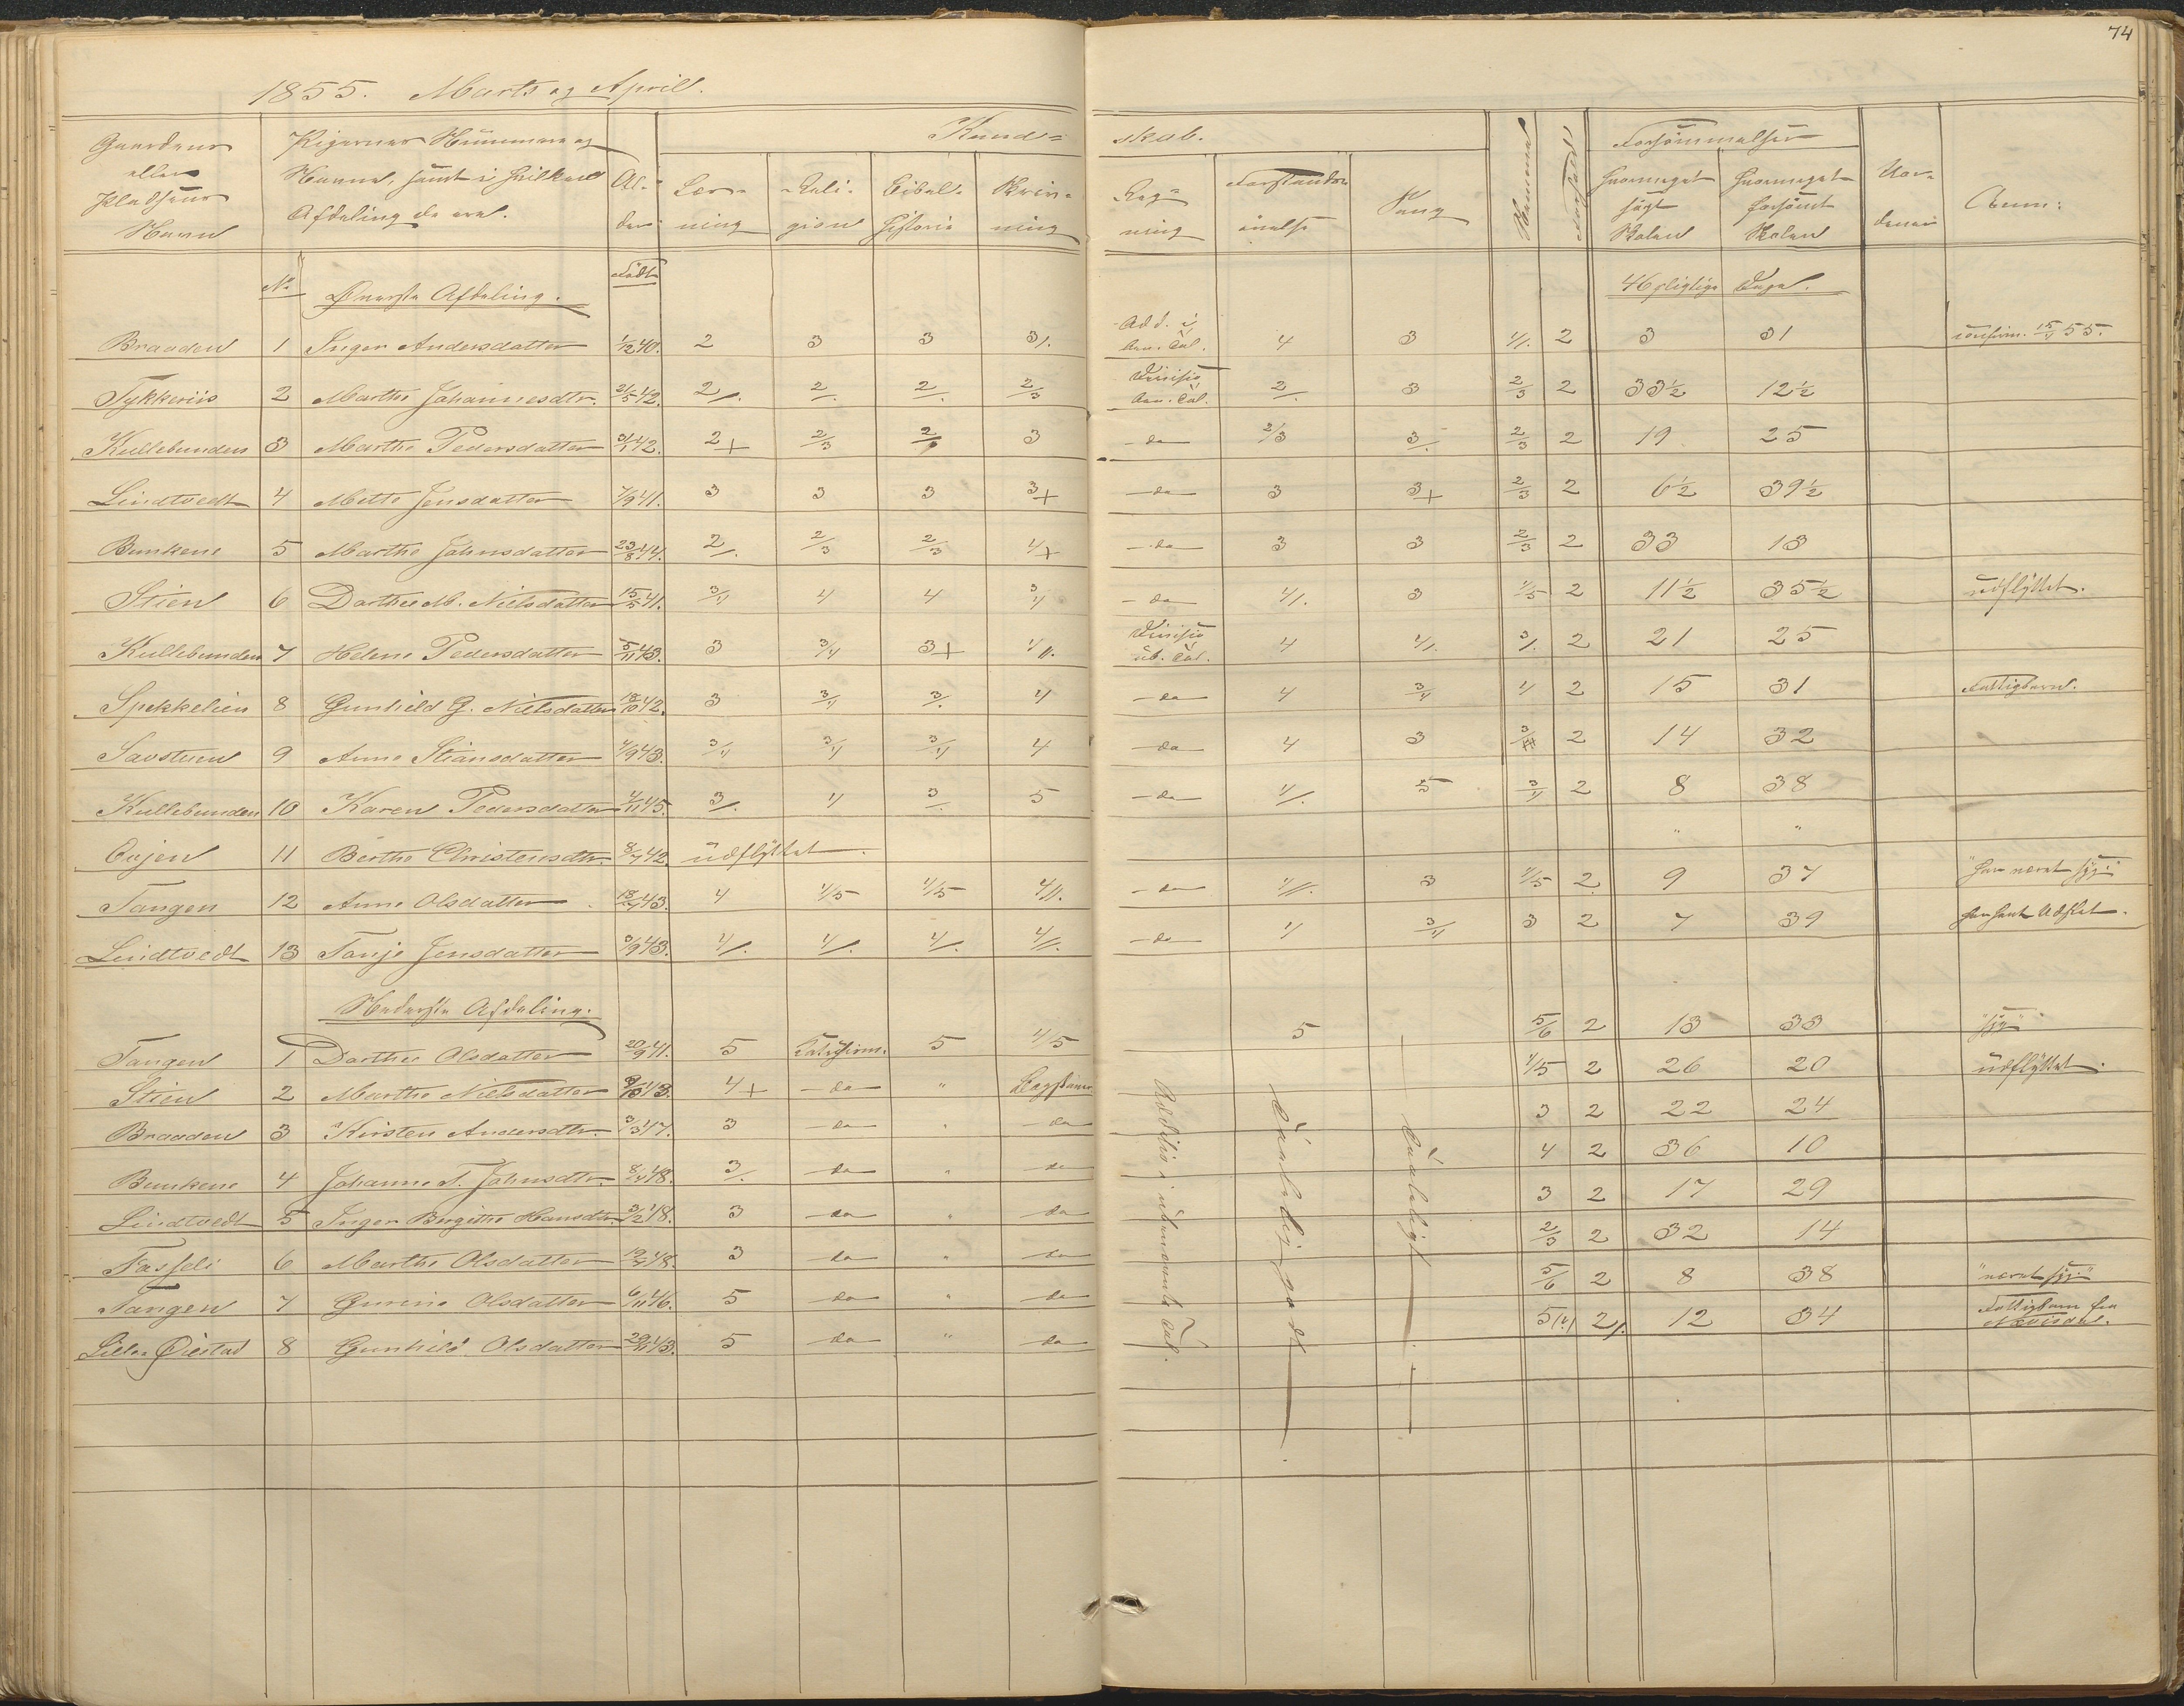 74
1855. Marts og April.
Gaardens eller Pladsens Navn
Pigernes Nummere og Navne, samt i hvilken Afdeling de ere.
Alder
Kundskab.
Læsning
Religion
Bibelhistorie
Skrivning
Regning
Forstandsøvelse
Sang
Nemme
Forhold
Forsømmelser
hvormeget søgt Skolen
hvormeget forsømt Skolen
Anm:
No Øverste Afdeling. Født 46 pligtige Dage.
Braaden 1 Inger Andersdatter 1/12 40. 2 3 3 3/. Add. i ben. Tal. 4 3 4/. 2 3 31 confirm. 15/4 55.
Tykkeriis 2 Marthe Johannesdtr. 21/5 42. 2/. 2/. 2/. 2/3 Divisio ben. Tal. 2/. 3 2/3 2 33½ 12½
Kullebunden 3 Marthe Pedersdatter 31/1 42. 2+ 2/3 2/. 3 do 2/3 3/. 2/3 2 19 25
Lindtvedt 4 Mette Jensdatter 7/9 41. 3 3 3 3+ do 3 3+ 2/3 2 6½ 39½
Bunkene 5 Marthe Johnsdatter 23/8 44. 2/. 2/3 2/3 4+ do 3 3 2/3 2 33 13
Stien 6 Dorthe M. Nielsdatter 15/5 41. 3/4 4 4 3/4 do 4/. 3 4/5 2 11½ 35½ udflyttet.
Kullebunden 7 Helene Pedersdatter 5/11 43. 3 3/4 3+ 4//. Divisio ub. Tal. 4 4/. 3/. 2 21 25
Spekkelien 8 Gunhild G. Nielsdatter 18/10 42. 3 3/4 3/. 4 do 4 3/4 4 2 15 31 Fattigbarn.
Savstuen 9 Anne Stiansdatter 4/9 43. 3/4 3/4 3/4 4 do 4 3 3/4 2 14 32
Kullebunden 10 Karen Pedersdatter 4/11 45. 3/. 4 3/. 5 do 4/. 5 3/4 2 8 38
11 Berthe Christensdtr. 8/7 42. udflyttet. " "
Tangen 12 Anne Olsdatter 18/4 43. 4 4/5 4/5 4//. do 4//. 3 4/5 2 9 37 "har været syg."
Lindtvedt 13 Tanje Jensdatter 3/9 43. 4/. 4/. 4/. 4//. do 4 3/4 3 2 7 39 har havt Udslet.
Nederste Afdeling.
Tangen 1 Dorthe Olsdatter 20/9 41. 5 5 4/5 5 5/6 2 13 33 "syg"
Stien 2 Marthe Nielsdatter 9/10 43. 4+ do " Bogstaver 4/5 2 26 20 udflyttet.
Braaden 3 Kirsten Andersdtr. 3/3 47. 3 do " do 3 2 22 24
Bunkene 4 Johanne T. Johnsdtr. 8/4 48. 3/. do " do 4 2 36 10
Lindtvedt 5 Inger Birgithe Hansdtr. 3/2 48. 3 do " do 3 2 17 29
6 Marthe Olsdatter 12/4 48. 3 do " do 2/3 2 32 14
Tangen 7 Gurine Olsdatter 6/11 46. 5 do " do 5/6 2 8 38 "været syg."
Lille Øiestad 8 Gunhild Olsdatter 29/11 43. 5 do " do 2/. 12 34 Fattigbarn fra
Additio i ubenævnte Tal.